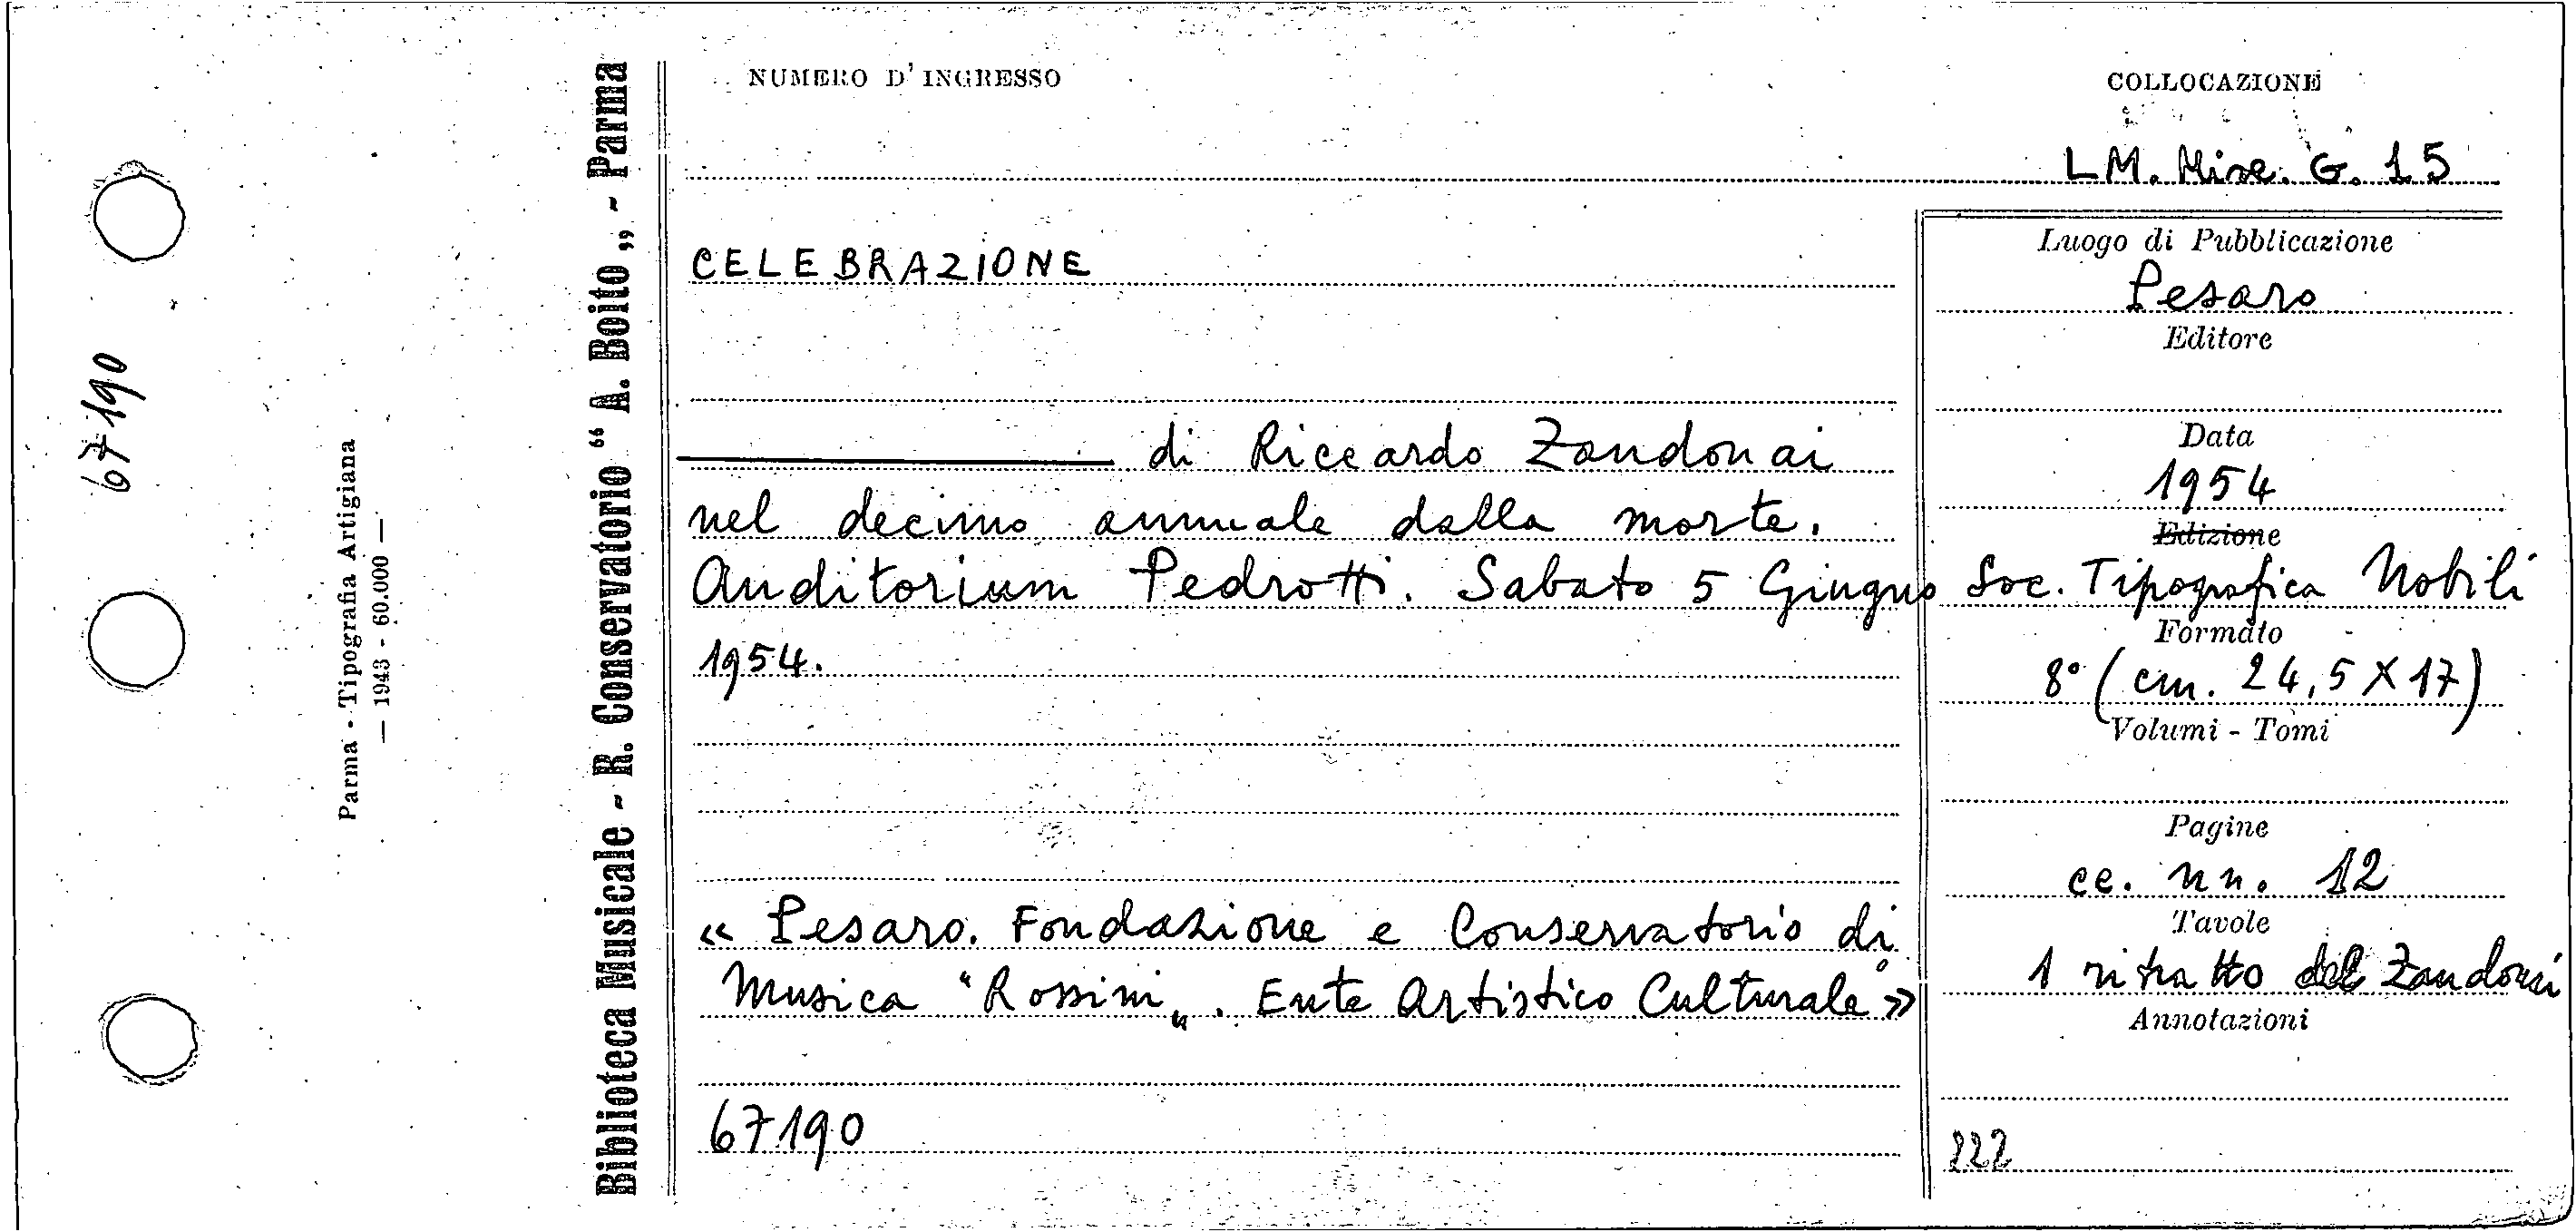 67190
Parma - Tipografia Artigiana
— 1943 - 60.000 —
Biblioteca Musicale - R. Conservatorio “ A. Boito „ - Parma
NUMERO D' INGRESSO
COLLOCAZIONE
LM. Misc. G. 15
CELEBRAZIONE
di Riccardo Zandonai
nel decimo annuale dalla morte.
Auditorium Pedrotti. Sabato 5 Giugno
1954.
« Pesaro. Fondazione e Conservatorio di
Musica “Rossini„. Ente Artistico Culturale »
67190
Luogo di Pubblicazione
Pesaro
Editore
Data
1954
Edizione
Soc. Tipografica Nobili
Formato
8° (cm. 24,5 X 17)
Volumi - Tomi
Pagine
cc. nn. 12
Tavole
1 ritratto del Zandonai
Annotazioni
222